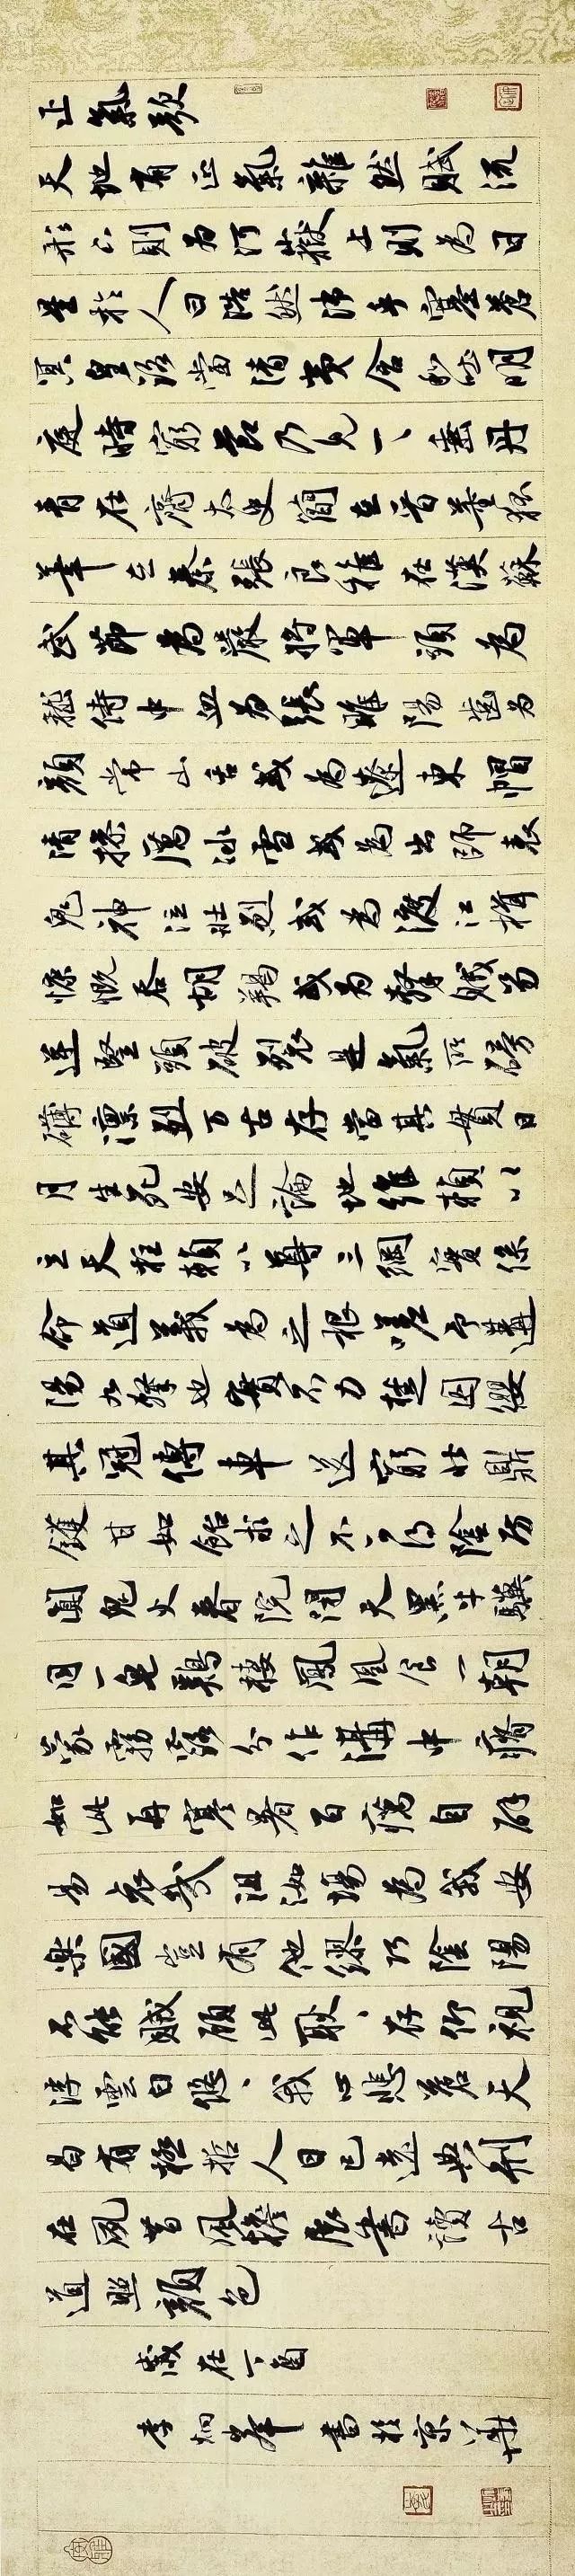 正氣歌
天地有正氣雜然賦流
形下則為河嶽上則為日
星於人曰浩然沛乎塞蒼
冥皇路當清夷含和吐明
庭時窮節乃見一一垂丹
青在齊太史簡在晉董狐
筆在秦張良椎在漢蘇
武節為嚴將軍頭為
嵇侍中血為張睢陽齒為
顏常山舌或為遼東帽
清操厲冰雪或為出師表
鬼神泣壯烈或為渡江楫
慷慨吞胡羯或為擊賊笏
逆豎頭破裂是氣所磅
礴凜烈萬古存當其貫日
月生死安足論地維賴以
立天柱賴以尊三綱實係
命道義為之根嗟予遘
陽九隸也實不力楚囚纓
其冠傳車送窮北鼎
鑊甘如飴求之不可得陰房
闃鬼火春院閟天黑牛驥
同一皂雞棲鳳凰食一朝
蒙霧露分作溝中瘠
如此再寒暑百癘自辟
易哀哉沮洳場為我安
樂國豈有他繆巧陰陽
不能賊顧此耿耿存仰視
浮雲白悠悠我心悲蒼天
曷有極哲人日已遠典刑
在夙昔風檐展書讀古
道照顏色
歲在丁酉
李炯峰書於京華